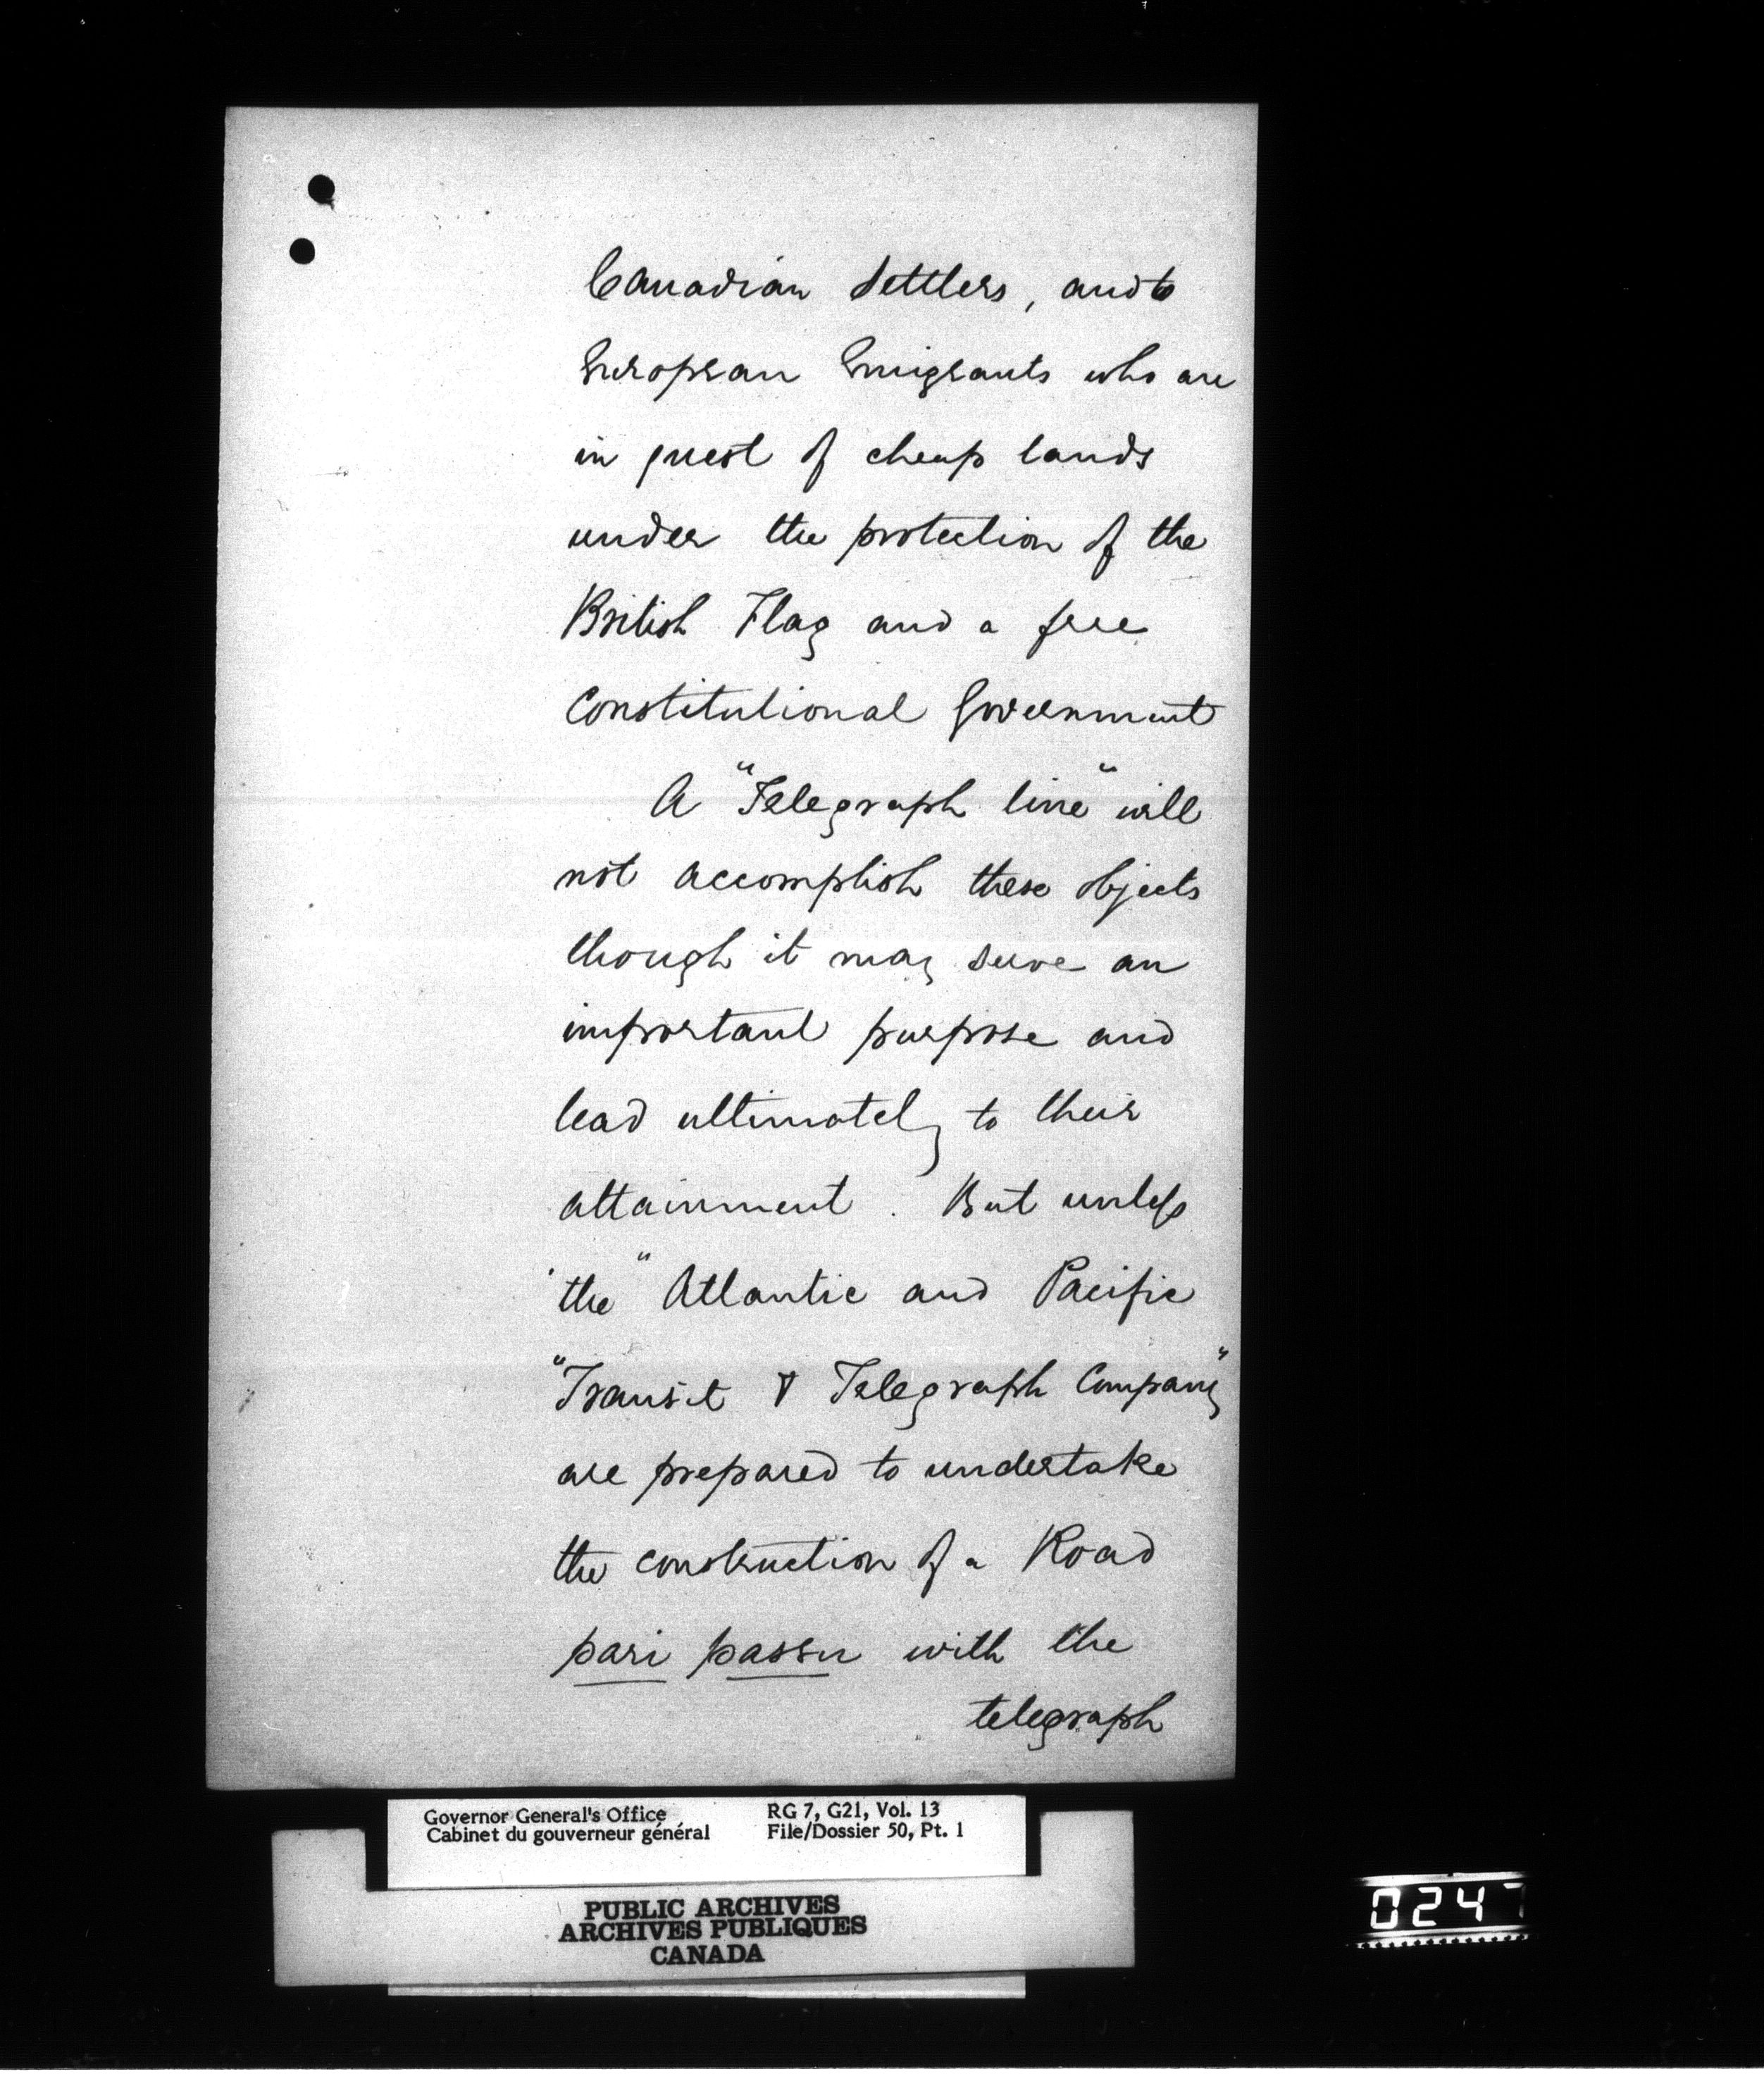 Canadian Settlers, and to
European Emigrants who are
in quest of cheap lands
under the protection of the
British Flag and a free
Constitutional Government
A "Telegraph line" will
not accomplish these objects
though it may serve an
important purpose and
lead ultimately to their
attainment. But unless
the "Atlantic and Pacific
"Transit & Telegraph Company"
are prepared to undertake
the construction of a Road
pari passu with the
telegraph
Governor General's Office RG 7, G21, Vol. 13
Cabinet du gouverneur général File/Dossier 50, Pt. 1
PUBLIC ARCHIVES
ARCHIVES PUBLIQUES
CANADA
0247